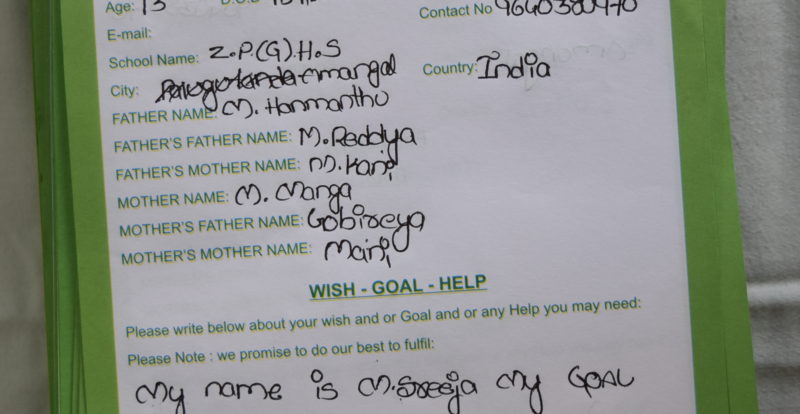 Age: 13
Contact No 9640380970
E-mail:
School Name: Z.P.(G).H.S
City: Country: India
FATHER NAME: M. Hanmanthu
FATHER'S FATHER NAME: M. Reddya
FATHER'S MOTHER NAME: M. Kani
MOTHER NAME: M. Manga
MOTHER'S FATHER NAME: Gobireya
MOTHER'S MOTHER NAME: Maini
WISH - GOAL - HELP
Please write below about your wish and or Goal and or any Help you may need:
Please Note : we promise to do our best to fulfil:
My name is M. Sreeja My GOAL